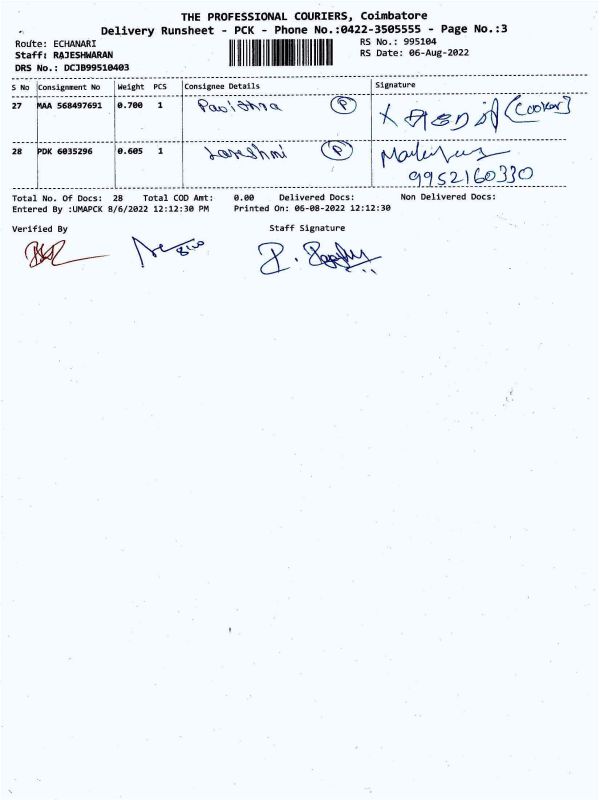 THE PROFESSIONAL COURIERS, Coimbatore
Delivery Runsheet - PCK - Phone No.:0422-3505555 - Page No.:3
Route: ECHANARI RS No.: 995104
Staff: RAJESHWARAN RS Date: 06-Aug-2022
DRS No.: DCJB99510403
S No Consignment No Weight PCS Consignee Details Signature
27 MAA 568497691 0.700 1 Pavithra P (Cooker)
28 PDK 6035296 0.605 1 Lakshmi P
9952160330
Total No. Of Docs: 28 Total COD Amt: 0.00 Delivered Docs: Non Delivered Docs:
Entered By :UMAPCK 8/6/2022 12:12:30 PM Printed On: 06-08-2022 12:12:30
Verified By Staff Signature